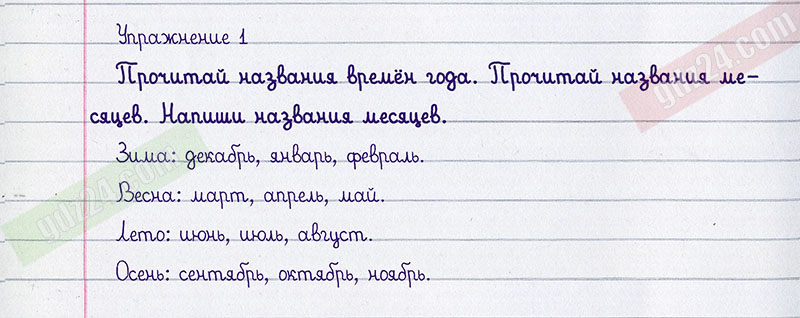 Упражнение 1
Прочитай названия времён года. Прочитай названия ме-
сяцев. Напиши названия месяцев.
Зима: декабрь, январь, февраль.
Весна: март, апрель, май.
Лето: июнь, июль, август.
Осень: сентябрь, октябрь, ноябрь.
gdz24.com
gdz24.com